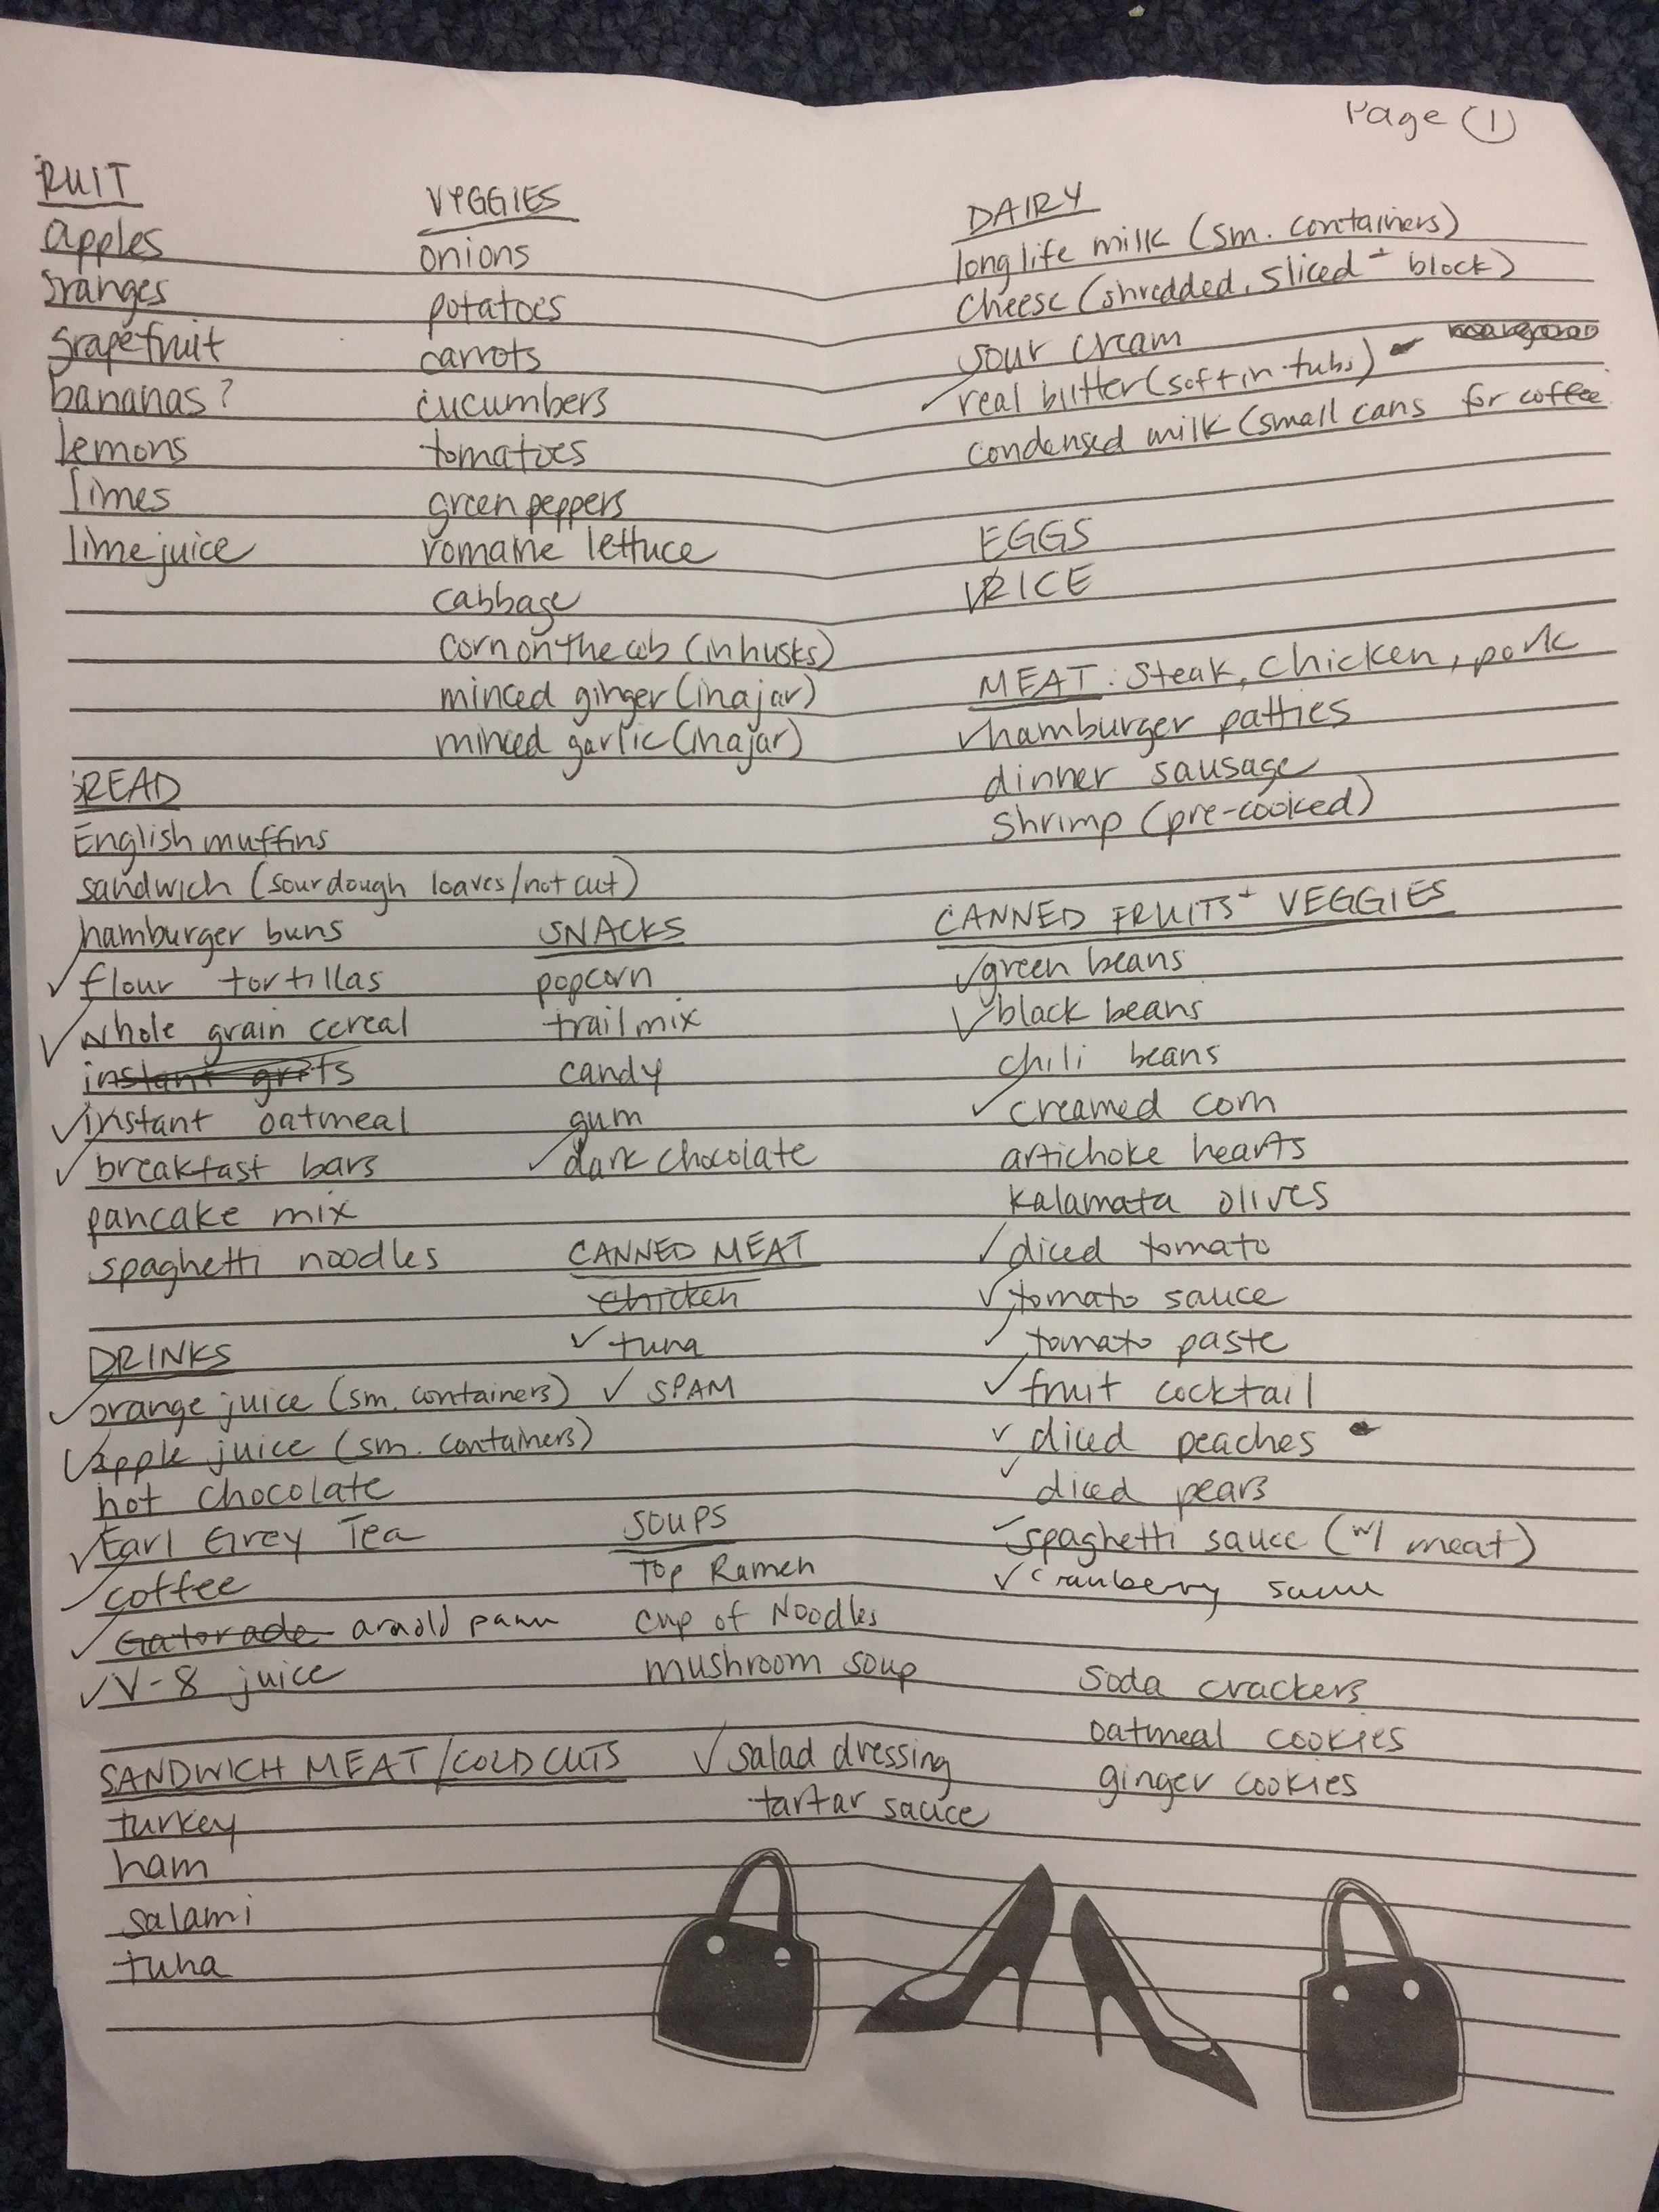 Page 1
RUIT
apples
oranges
grapefruit
bananas?
lemons
limes
lime juice
VEGGIES
onions
potatoes
carrots
cucumbers
tomatoes
green peppers
romaine lettuce
cabbage
corn on the cob (in husks)
minced ginger (in a jar)
minced garlic (in a jar)
DAIRY
long life milk (sm. containers)
cheese (shredded, sliced + block)
sour cream
✓ real butter (soft in tubs)
condensed milk (small cans for coffee
EGGS
✓ RICE
MEAT: steak, chicken, pork
✓ hamburger patties
dinner sausage
shrimp (pre-cooked)
BREAD
English muffins
sandwich (sourdough loaves/not cut)
hamburger buns
✓ flour tortillas
✓ whole grain cereal
instant grits
✓ instant oatmeal
✓ breakfast bars
pancake mix
spaghetti noodles
SNACKS
popcorn
trail mix
candy
gum
✓ dark chocolate
CANNED MEAT
chicken
✓ tuna
✓ SPAM
CANNED FRUITS + VEGGIES
✓ green beans
✓ black beans
chili beans
✓ creamed corn
artichoke hearts
kalamata olives
✓ diced tomato
✓ tomato sauce
✓ tomato paste
✓ fruit cocktail
✓ diced peaches
✓ diced pears
✓ spaghetti sauce (w/ meat)
✓ cranberry sauce
DRINKS
✓ orange juice (sm. containers)
✓ apple juice (sm. containers)
hot chocolate
✓ Earl Grey Tea
✓ coffee
✓ Gatorade arnold
✓ V-8 juice
SOUPS
Top Ramen
Cup of Noodles
mushroom soup
soda crackers
oatmeal cookies
ginger cookies
SANDWICH MEAT/COLD CUTS
turkey
ham
salami
tuna
✓ salad dressing
tartar sauce